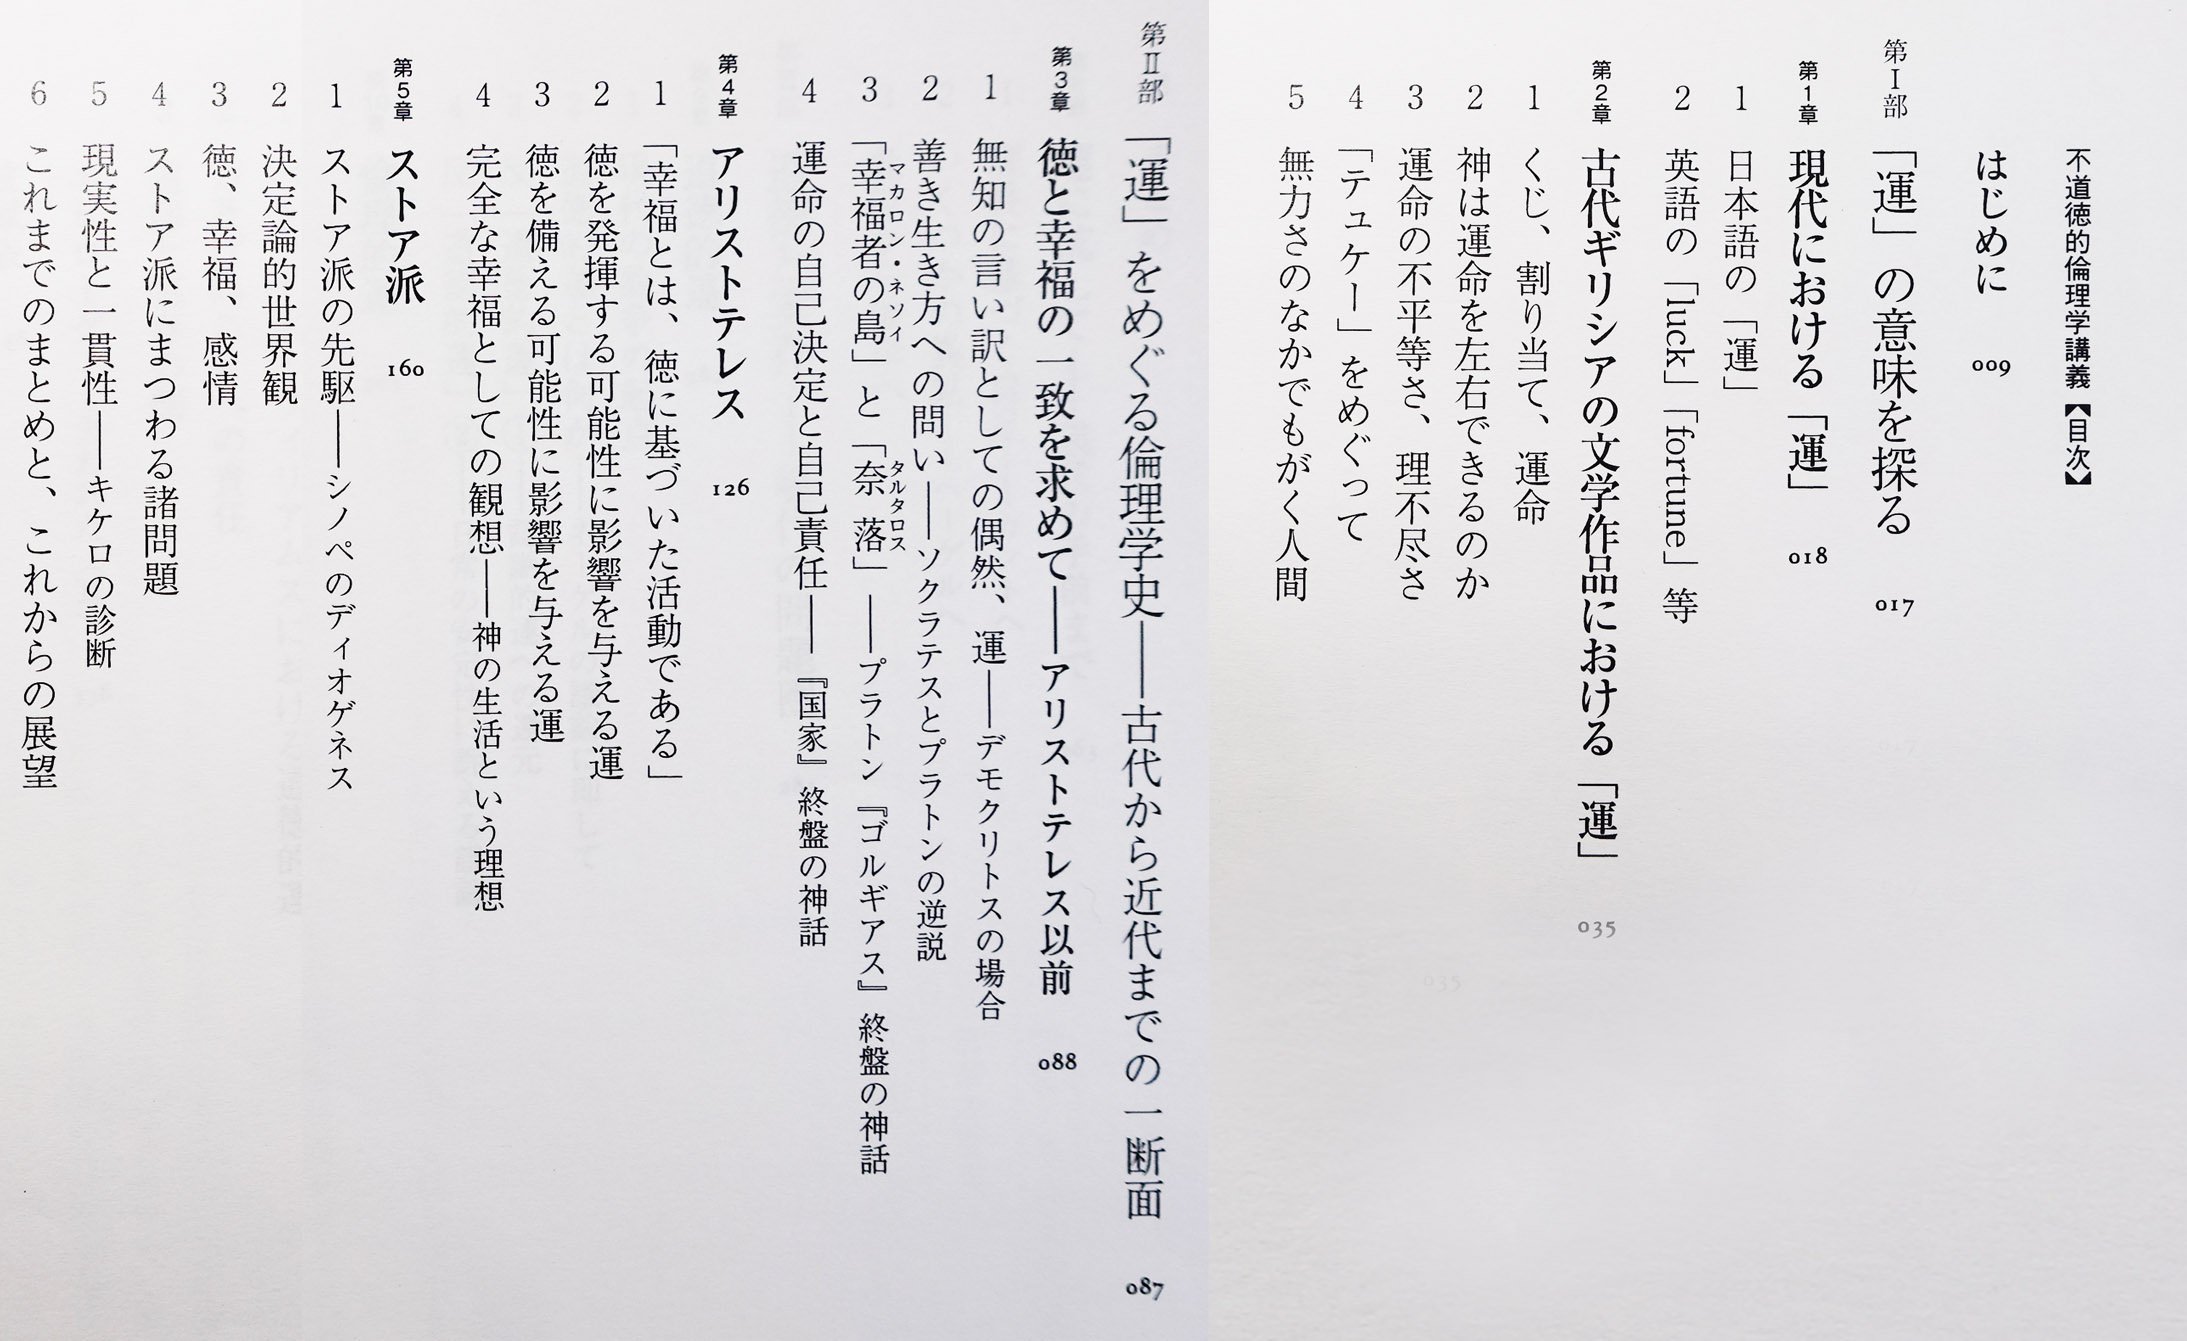 不道徳的倫理学講義【目次】
はじめに 009
第Ⅰ部 「運」の意味を探る 017
第1章 現代における「運」 018
1 日本語の「運」
2 英語の「luck」「fortune」等
第2章 古代ギリシアの文学作品における「運」 035
1 くじ、割り当て、運命
2 神は運命を左右できるのか
3 運命の不平等さ、理不尽さ
4 「テュケー」をめぐって
5 無力さのなかでもがく人間
第Ⅱ部 「運」をめぐる倫理学史――古代から近代までの一断面 087
第3章 徳と幸福の一致を求めて――アリストテレス以前 088
1 無知の言い訳としての偶然、運――デモクリトスの場合
2 善き生き方への問い――ソクラテスとプラトンの逆説
マカロン・ネソイ タルタロス
3 「幸福者の島」と「奈落」――プラトン『ゴルギアス』終盤の神話
4 運命の自己決定と自己責任――『国家』終盤の神話
第4章 アリストテレス 126
1 「幸福とは、徳に基づいた活動である」
2 徳を発揮する可能性に影響を与える運
3 徳を備える可能性に影響を与える運
4 完全な幸福としての観想――神の生活という理想
第5章 ストア派 160
1 ストア派の先駆――シノペのディオゲネス
2 決定論的世界観
3 徳、幸福、感情
4 ストア派にまつわる諸問題
5 現実性と一貫性――キケロの診断
6 これまでのまとめと、これからの展望